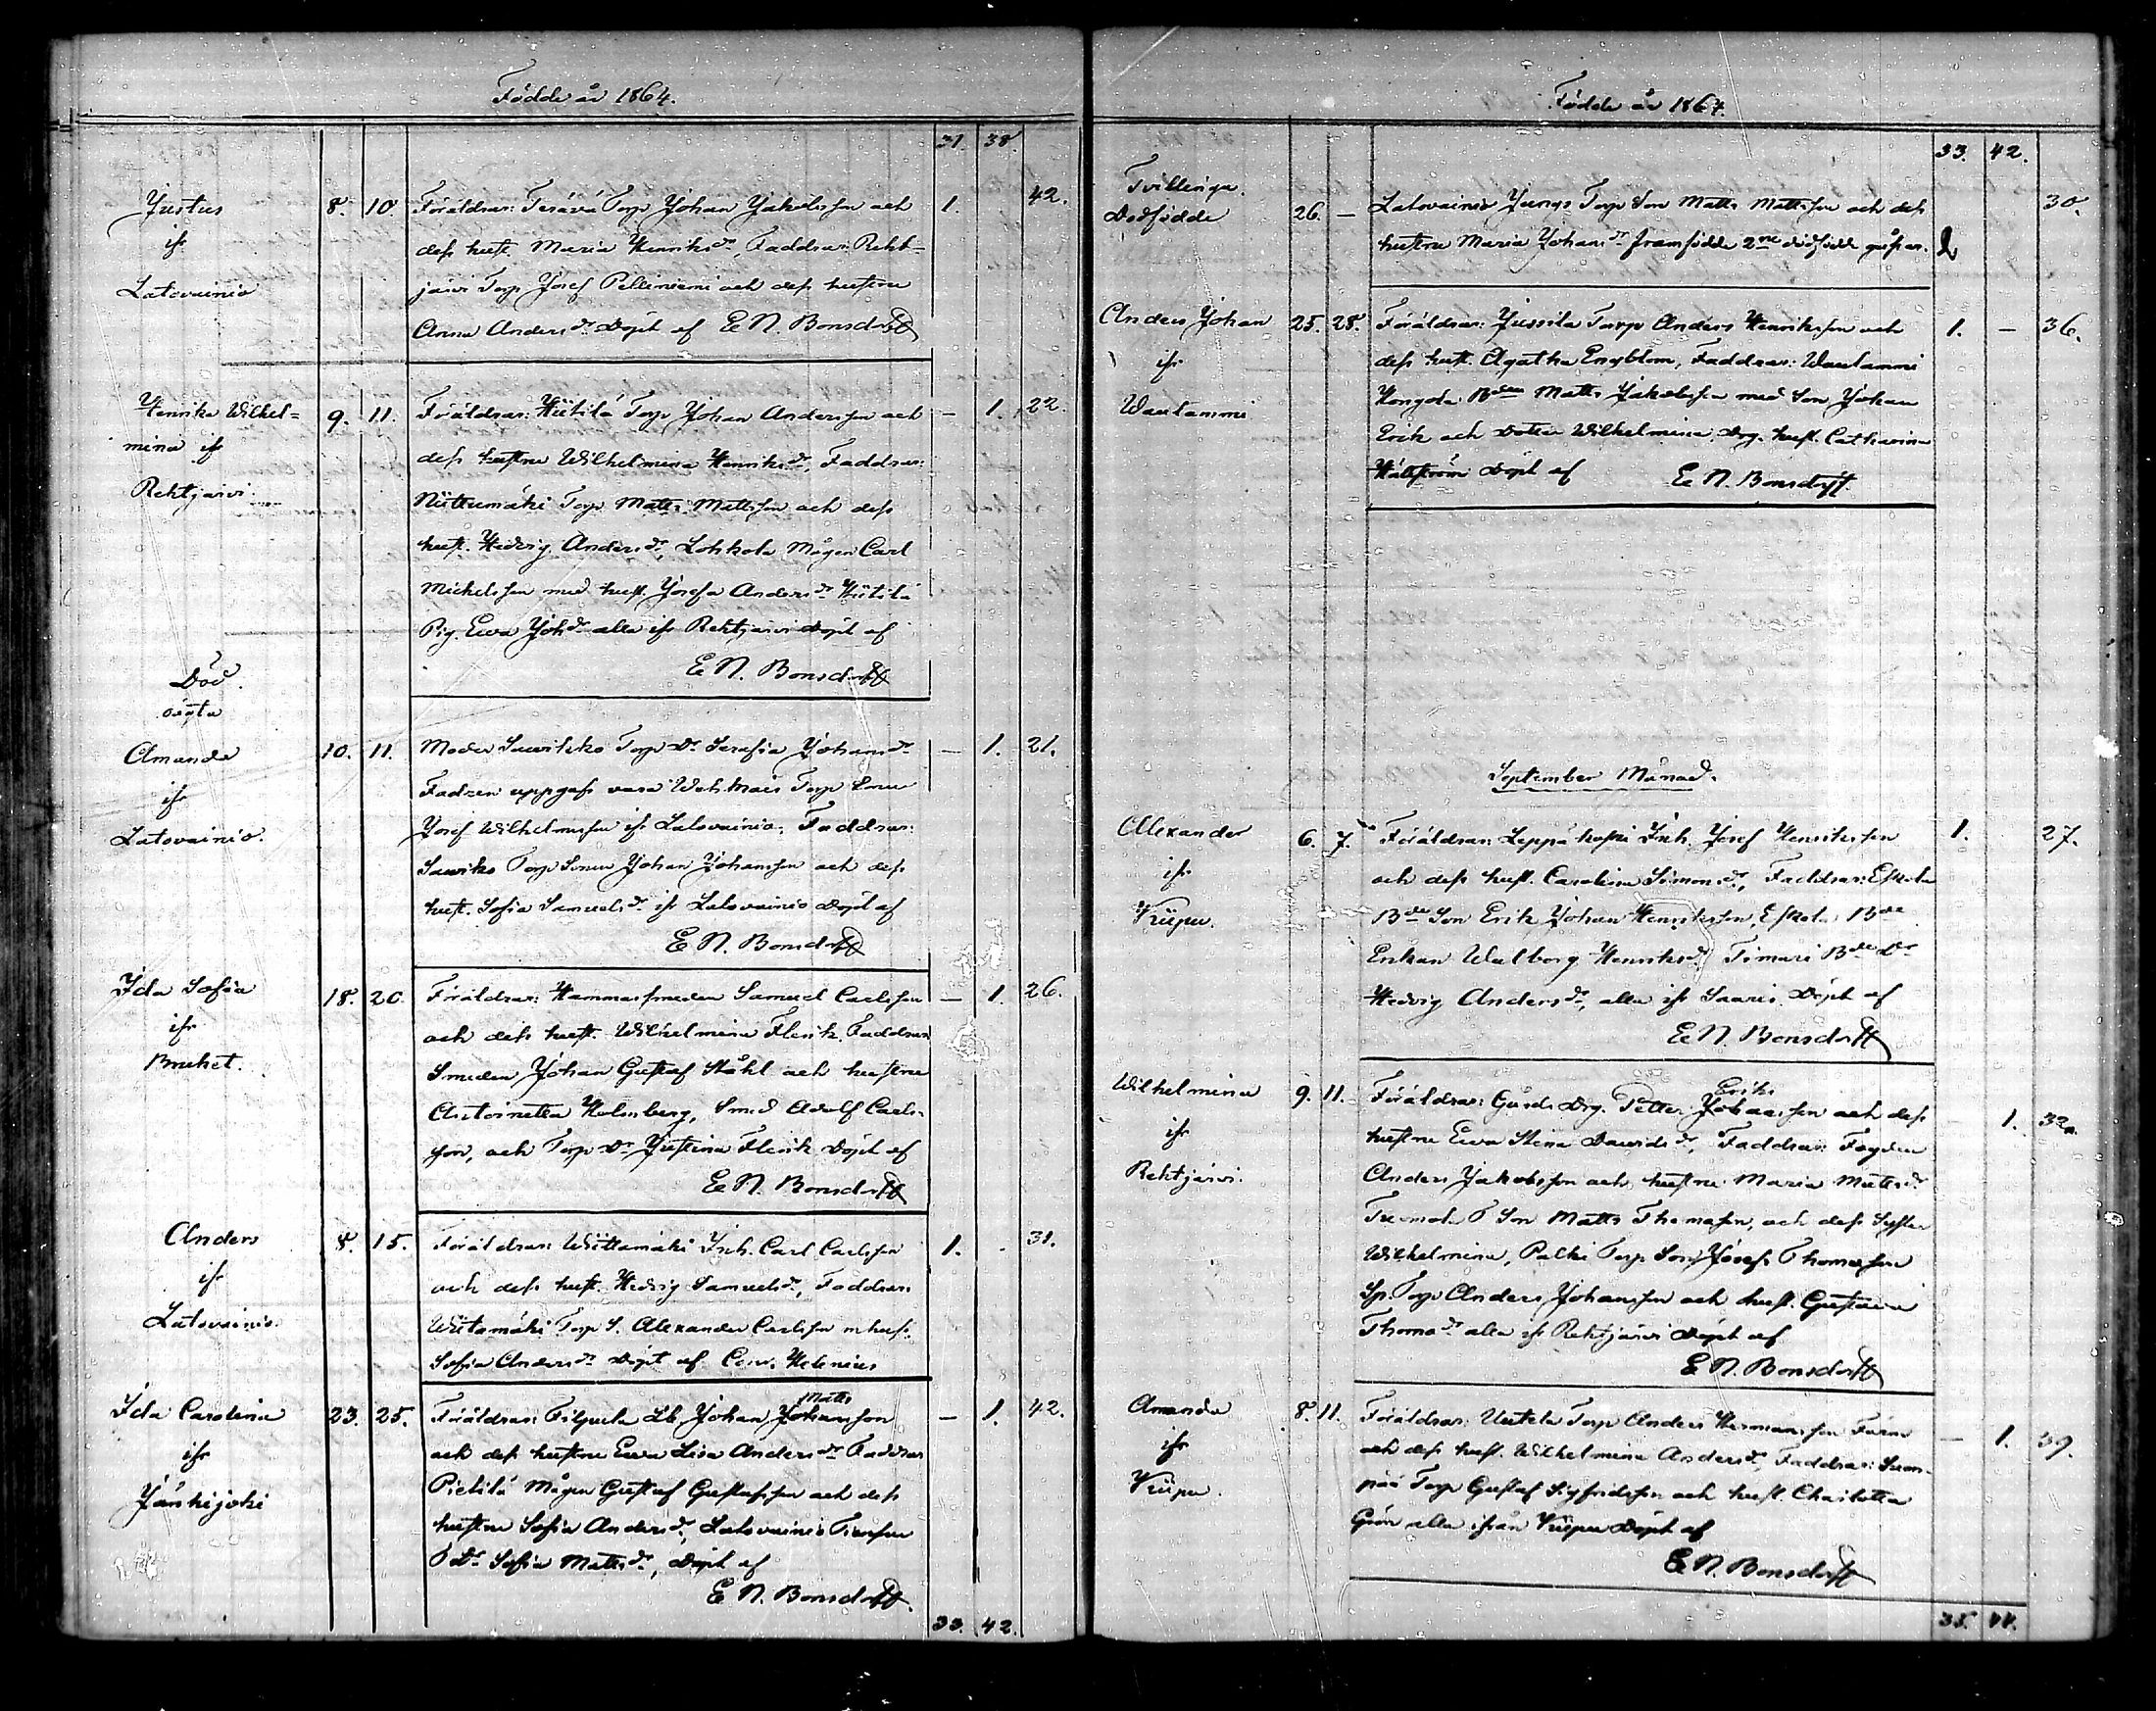 Födde år 1864.
31. 38.
Justus 8. 10. Föräldrar: Terävä Torp. Johan Jakobsson och 1. 42.
ifr dess hust. Maria Henriksdr, Faddrar: Reht-
Latovainio järvi Torp Josef Pelliniemi och dess hustru
Anna Andersdr Döpt af E N. Bonsdorff
Henrika Wilhel- 9. 11. Föräldrar: Hütilä Torp Johan Andersson och — 1. 22.
mina ifr dess hustru Wilhelmina Henriksdr, Faddrar:
Rehtjärvi Niittumäki Torp Matts Mattsson och dess
hust. Hedvig Andersdr, Lohkola Mågen Carl
Michelsson med hust. Josefa Andersdr Hütilä
Pig. Ewa Johdr alla ifr Rehtjärvi Döpt af
E N. Bonsdorff
Död.
oägta
Amanda 10. 11. Moder Torp Dr Serafia Johansdr — 1. 21.
ifr Fadren uppgafs vara Torp Sonen
Latovainio. Josef Wilhelmsson ifr Latovainio, Faddrar:
Torp Sonen Johan Johansson och dess
hust. Sofia Samuelsdr ifr Latovainio Döpt af
E N. Bonsdorff
Ida Sofia 18. 20. Föräldrar: Hammarsmeden Samuel Carlsson — 1. 26.
ifr och dess hust. Wilhelmina Flenk, Faddrar
Bruket. Smeden Johan Gustaf Ståhl och hustru
Antoinetta Holmberg, Smed Adolf Carls-
son, och Torp Dr Justina Flenk Döpt af
E N. Bonsdorff
Anders 8. 15. Föräldrar: Wiittamäki Inh. Carl Carlsson 1. . 31.
ifr och dess hust. Hedvig Samuelsdr, Faddrar:
Latovainio. Wiitamäki Torp S. Alexander Carlsson m hust.
Sofia Andersdr Döpt af Helenius
Matts
Ida Carolina 23. 25. Föräldrar: Filpula Lb Johan Johansson — 1. 42.
ifr och dess hustru Ewa Lisa Andersdr Faddrar
Jänhijoki Pietilä Mågen Gustaf Gustafsson och dess
hustru Sofia Andersdr, Latovainio
Dr Sofia Mattsdr, Döpt af
E N. Bonsdorff.
33. 42.
Födde år 1864.
33. 42.
Tvillingar.
Dödfödde 26. — Latovainio Junge Torp Son Matts Mattsson och dess 30.
hustru Maria Johansdr framfödde 2ne dödfödde gossar. 2
Anders Johan 25. 28. Föräldrar: Jussila Torp Anders Henriksson och 1. — 36.
ifr dess hust. Agatha Engblom, Faddrar: Wautammi
Wautammi Hongola Matts Jakobsson med Son Johan
Erik och Dotter Wilhelmina, Drg. hust. Catharina
Hällström Döpt af E N. Bonsdorff
September Månad.
Alexander 6. 7. Föräldrar: Inh. Josef Henriksson 1. 27.
ifr och dess hust. Carolina Simonsdr, Faddrar: Eskola
Wiipu. Bde Son Erik Johan Henriksson, Eskola Bde
Enkan Walborg Henriksdr Timari Bde Dr
Hedvig Andersdr, alla ifr Saaris Döpt af
E N. Bonsdorff
Eriks
Wilhelmina 9. 11. Föräldrar: Gårds Drg. Petter Johansson och dess 1. 32.
ifr hustru Ewa Stina Davidsdr, Faddrar: Fogden
Rehtjärvi. Anders Jakobsson och hustru Maria Mattsdr
Son Matts Thomasson, och dess Syster
Wilhelmina, Palki Torp Son Josef Thomasson
Sp. Torp Anders Johansson och hust. Gustava
Thomasdr alla ifr Rehtjärvi Döpt af
E N. Bonsdorff
Amanda 8. 11. Föräldrar: Uutela Torp Anders Hermansson — 1. 39.
ifr och dess hust. Wilhelmina Andersdr, Faddrar: Suon-
Wiipu. pää Torp Gustaf Sigfridsson och hust. Charlotta
Grön alla ifrån Wiipu Döpt af
E N. Bonsdorff
35. 44.